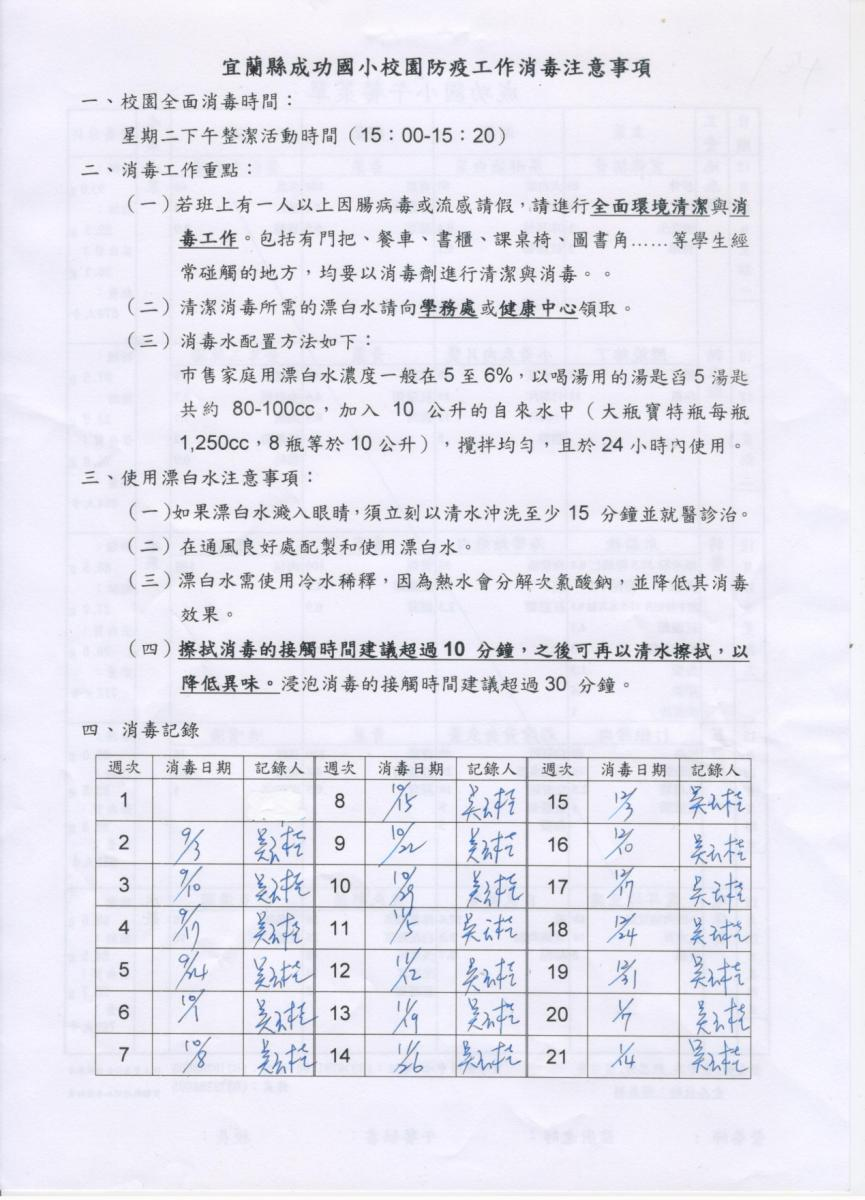 宜蘭縣成功國小校園防疫工作消毒注意事項
一、校園全面消毒時間：
星期二下午整潔活動時間（15：00-15：20）
二、消毒工作重點：
（一）若班上有一人以上因腸病毒或流感請假，請進行全面環境清潔與消
毒工作。包括有門把、餐車、書櫃、課桌椅、圖書角……等學生經
常碰觸的地方，均要以消毒劑進行清潔與消毒。。
（二）清潔消毒所需的漂白水請向學務處或健康中心領取。
（三）消毒水配置方法如下：
市售家庭用漂白水濃度一般在 5 至 6%，以喝湯用的湯匙舀 5 湯匙
共約 80-100cc，加入 10 公升的自來水中（大瓶寶特瓶每瓶
1,250cc，8 瓶等於 10 公升），攪拌均勻，且於 24 小時內使用。
三、使用漂白水注意事項：
（一)如果漂白水濺入眼睛，須立刻以清水沖洗至少 15 分鐘並就醫診治。
（二）在通風良好處配製和使用漂白水。
（三）漂白水需使用冷水稀釋，因為熱水會分解次氯酸鈉，並降低其消毒
效果。
（四）擦拭消毒的接觸時間建議超過 10 分鐘，之後可再以清水擦拭，以
降低異味。浸泡消毒的接觸時間建議超過 30 分鐘。
四、消毒記錄
週次 消毒日期 記錄人 週次 消毒日期 記錄人 週次 消毒日期 記錄人
1 8 10/15 吳玉桂 15 12/3 吳玉桂
2 9/3 吳玉桂 9 10/22 吳玉桂 16 12/10 吳玉桂
3 9/10 吳玉桂 10 10/29 吳玉桂 17 12/17 吳玉桂
4 9/17 吳玉桂 11 11/5 吳玉桂 18 12/24 吳玉桂
5 9/24 吳玉桂 12 11/12 吳玉桂 19 12/31 吳玉桂
6 10/1 吳玉桂 13 11/19 吳玉桂 20 1/7 吳玉桂
7 10/8 吳玉桂 14 11/26 吳玉桂 21 1/14 吳玉桂